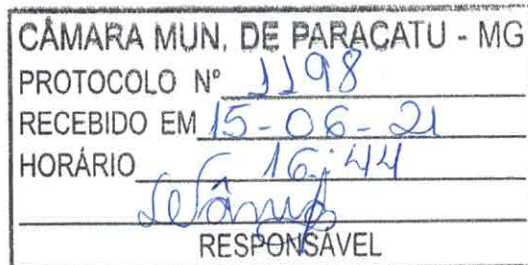 CÂMARA MUN. DE PARACATU - MG
PROTOCOLO Nº 1198
RECEBIDO EM 15-06-21
HORÁRIO 16:44
RESPONSÁVEL